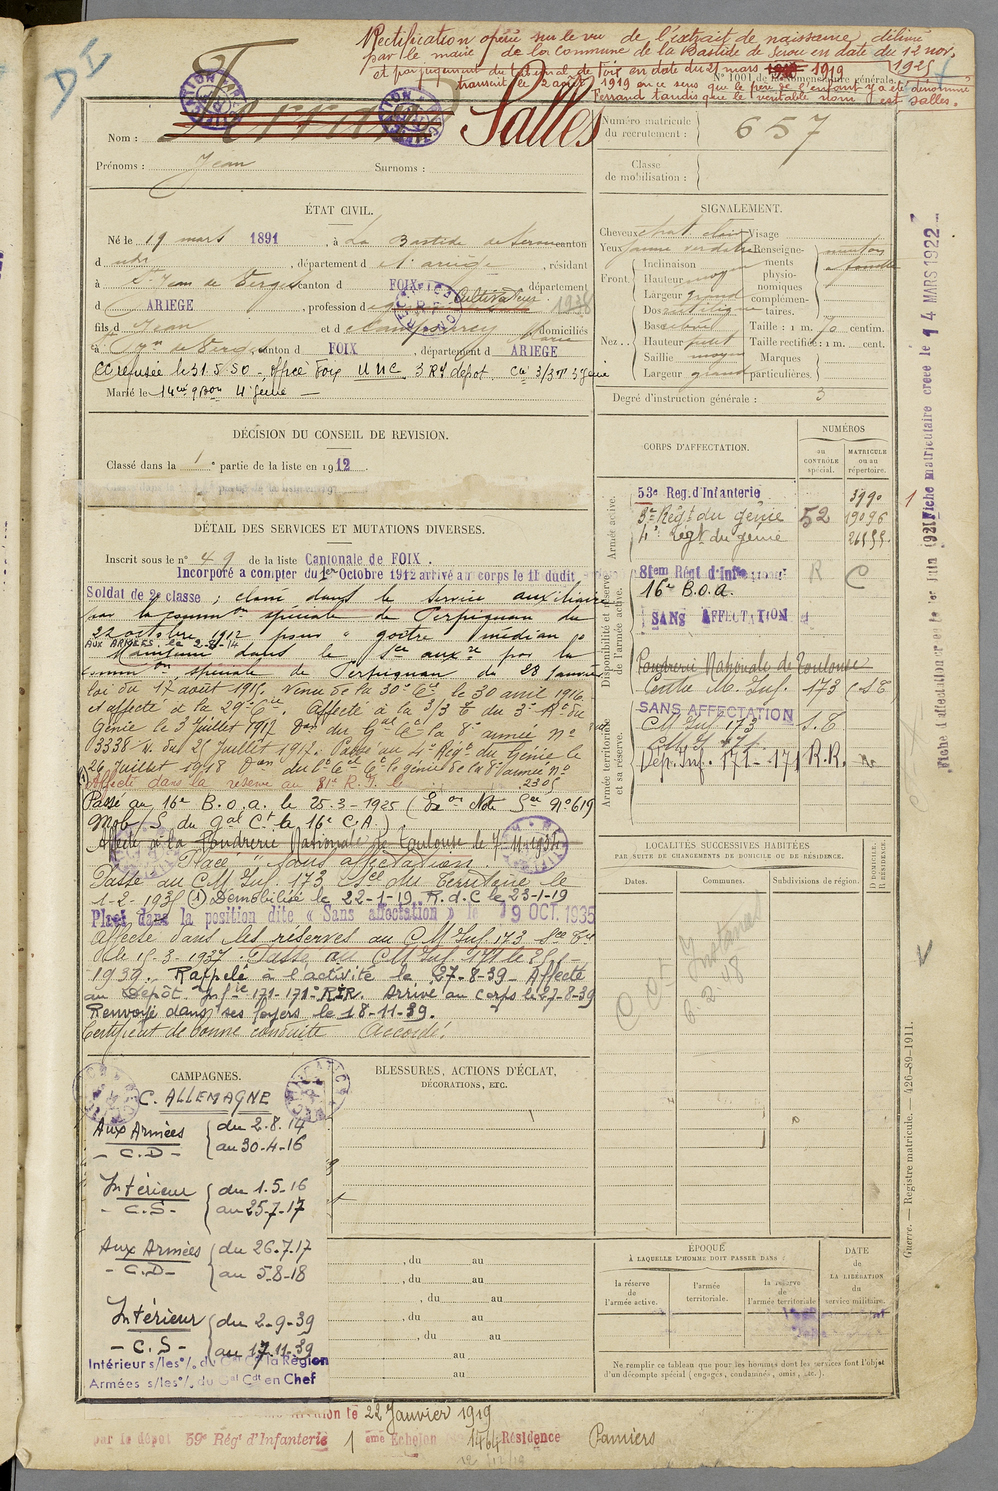 Rectification opérée sur le vu de l'extrait de naissance délivré
par le maire de la Commune de la Bastide de Sérou en date du 12 nov. 1925
et par jugement du tribunal de Foix en date du 21 mars 1919
N° 1001 de la Nomenclature générale.
transcrit le 2 août 1919 en ce sens que le père de l'enfant y a été dénommé
Ferrand tandis que le véritable nom est Salles.
DI
Nom : Salles
Prénoms : Jean Surnoms :
Numéro matricule du recrutement : 657
Classe de mobilisation :
ÉTAT CIVIL.
Né le 19 mars 1891, à La Bastide de Sérou canton
d udit, département d e l'ariège, résidant
à St Jean de Verges canton d FOIX, département
d ARIEGE, profession d Cultivateur
fils d Jean et d domiciliés
à St Jn de Verges canton d FOIX, département d ARIEGE
CC refusée le 31.5.50 - Office Foix UMC 3 Rg dépot
Marié le
SIGNALEMENT.
Cheveux chat clair Visage
Yeux jaune verdâtre Renseignements physionomiques complémentaires.
Front. Inclinaison
Hauteur moyen
Largeur grand
Nez. Dos rectiligne
Base
Hauteur petit
Saillie moyen
Largeur grand
menton à fossette
Taille : 1 m. 70 centim.
Taille rectifiée : 1 m. cent.
Marques particulières.
Degré d'instruction générale : 3
DÉCISION DU CONSEIL DE REVISION.
Classé dans la 1e partie de la liste en 1912.
CORPS D'AFFECTATION.
NUMÉROS
au CONTRÔLE spécial.
MATRICULE ou au répertoire.
Armée active.
53e Reg. d'Infanterie 3990
3e Régt du génie 52 19096
4e Régt du génie
Disponibilité et réserve de l'armée active.
81em Régt d'Infanterie R C
16e B.O.A.
SANS AFFECTATION
Armée territoriale et sa réserve.
Poudrerie Nationale de Toulouse
Centre M. Inf. 173 S.T.
SANS AFFECTATION
CM Inf 173 S.T.
CM Inf 171
Dép. Inf. 171 - 171 R.R.
DÉTAIL DES SERVICES ET MUTATIONS DIVERSES.
Inscrit sous le n° 49 de la liste Cantonale de FOIX.
Incorporé a compter du 1er Octobre 1912 arrivé au corps le 11 dudit
Soldat de 2e classe ; classé dans le service auxiliaire
par la common spéciale de Perpignan du
22 octobre 1912 pour "goître médian"
AUX ARMÉES le 2-8-14
Maintenu dans le Sce auxre par la
Common spéciale de Perpignan du 28 Janvier
loi du 17 août 1915. Venu de la 30e Cie le 30 avril 1916
et affecté à la 29e Cie. Affecté à la 3/3 T du 3e Rt du
Génie le 3 Juillet 1917 Don du Gal Ct la 8e armée N°
13338/2 du 25 Juillet 1917. Passé au 4e Régt du Génie le
26 Juillet 1918
Affecté dans la réserve au 81e R.I. le
Passé au 16e B.O.A. le 25-3-1925 (Exon Note Sce N° 619
Mob/S du Gal Ct le 16e C.A.)
Affecté à la Poudrerie Nationale de Toulouse le
Placé "Sans affectation".
Passé au CM Inf 173 Sce du Territoire le
1-2-193 (1) Démobilisé le 22-1-19 R.d.C le 23-1-19
Placé dans la position dite « Sans affectation » le 19 OCT. 1935
Affecté dans les réserves au CM Inf 173 Sce Tre
le 15-3-1937. Passé au CM Inf 171 le
1939. Rappelé à l'activité le 27-8-39 Affecté
au Dépôt Infie 171-171e RIR. Arrivé au corps le 27-8-39
Renvoyé dans ses foyers le 18-11-39.
Certificat de bonne conduite Accordé.
LOCALITÉS SUCCESSIVES HABITÉES
PAR SUITE DE CHANGEMENTS DE DOMICILE OU DE RÉSIDENCE.
Dates. Communes. Subdivisions de région. D DOMICILE. R RÉSIDENCE.
6.2.18
CAMPAGNES.
C. ALLEMAGNE
Aux Armées - C.D - du 2.8.14 au 30-4-16
Intérieur - C.S - du 1.5-16 au 25-7-17
Aux Armées - C.D - du 26.7.17 au 5-8-18
Intérieur - C.S - du 2-9-39 au 17.11.39
Intérieur s/les°/. du Gal Ct la Région
Armées s/les°/. du Gal Cdt en Chef
BLESSURES, ACTIONS D'ÉCLAT, DÉCORATIONS, ETC.
, du au
, du au
, du au
, du au
, du au
au
au
ÉPOQUE À LAQUELLE L'HOMME DOIT PASSER DANS
la réserve de l'armée active.
l'armée territoriale.
la réserve de l'armée territoriale
DATE de LA LIBÉRATION du service militaire.
Ne remplir ce tableau que pour les hommes dont les services font l'objet d'un décompte spécial (engagés, condamnés, omis, etc.).
le 22 Janvier 1919
par le dépôt 59e Rég d'Infanterie 1 eme Echelon 1464 Résidence Pamiers
Fiche matriculaire créée le 14 MARS 1922
Fiche d'affectation créée le 1er Juin 1921
Guerre. — Registre matricule. — 426-89-1911.